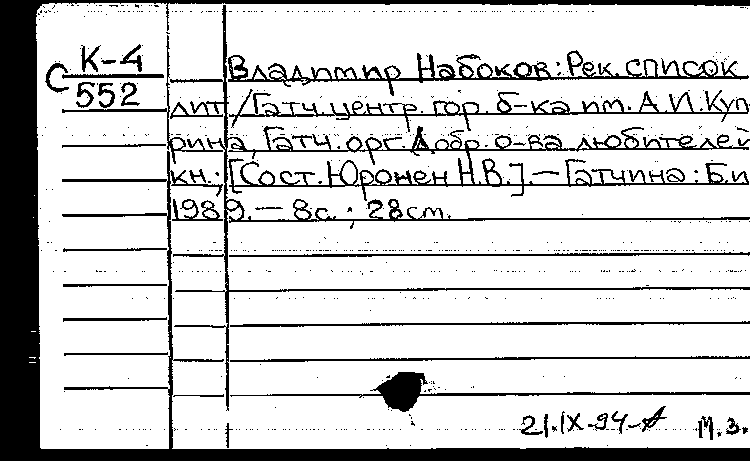 С К-4
552
Владимир Набоков: Рек. список
лит / Гатч. центр. гор. б-ка им. А.И. Куп
рина, Гатч. орг. Добр. о-ва любителей
кн.; [Сост. Юронен Н.В.]. — Гатчина: Б.и
1989. — 8с.; 28см.
21.IX-94-А М.З.